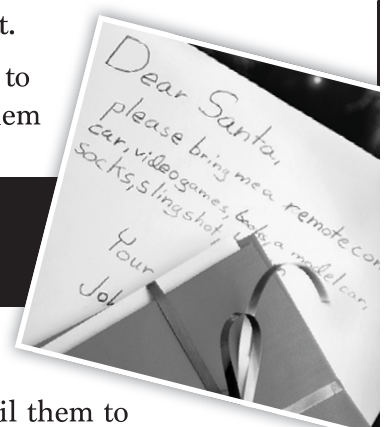 t.
to
em
Dear Santa,
please bring me a remote con
car, videogames, books, a model car,
socks, slingshot,
Your
Joh
il them to